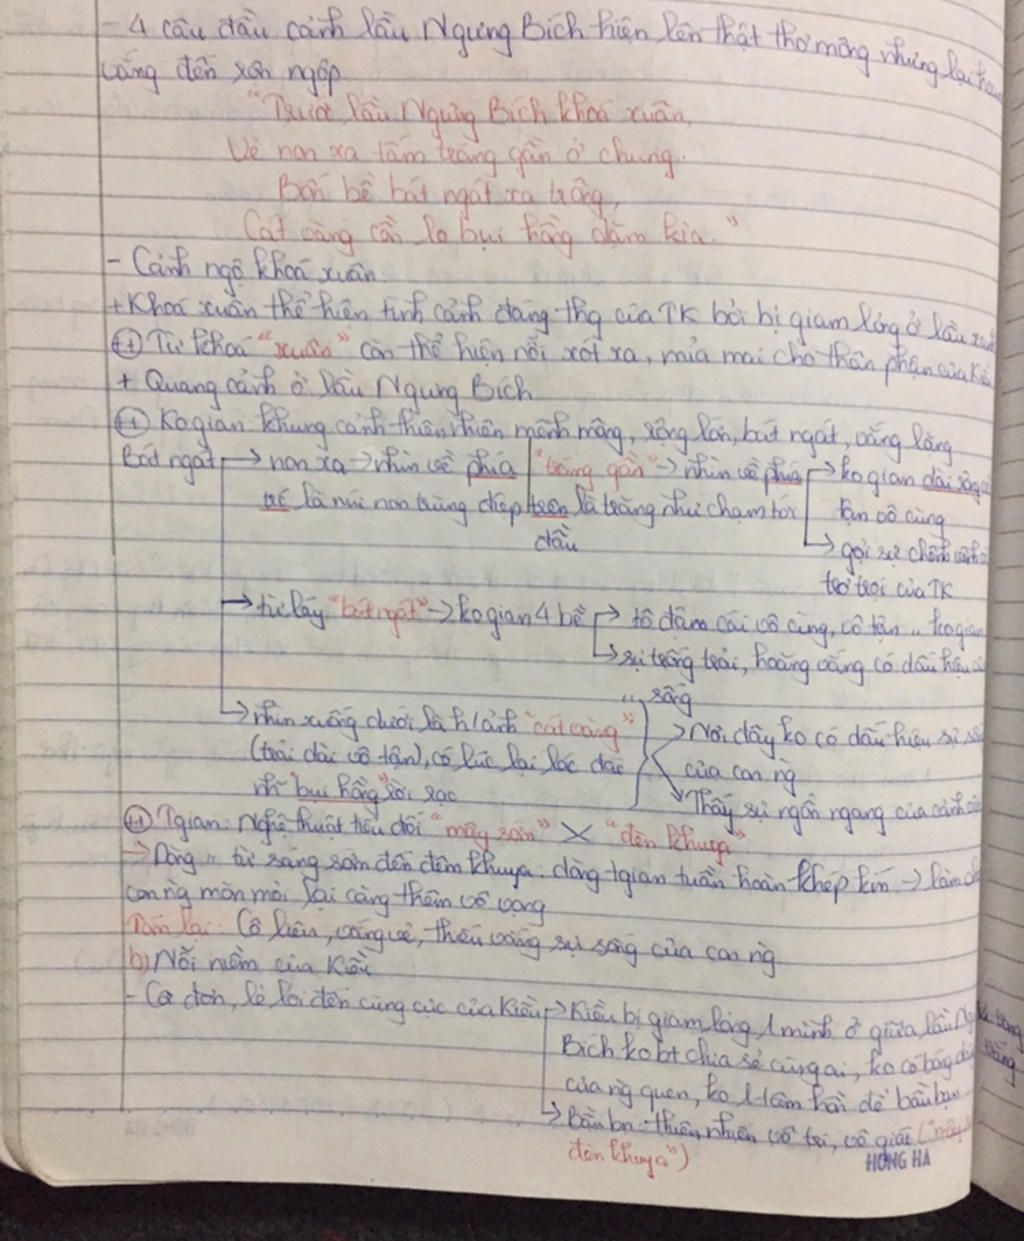 - 4 câu đầu cảnh lầu Ngưng Bích hiện lên thật thơ mộng nhưng lại
vắng đến
"Trước lầu Ngưng Bích khoá xuân,
Vẻ non xa tấm trăng gần ở chung.
Bốn bề bát ngát xa trông,
Cát vàng cồn lọ bụi hồng dặm kia."
- Cảnh ngộ khoá xuân.
+ Khoá xuân thể hiện tình cảnh đáng thg của TK bởi bị giam lỏng ở lầu
++ Từ khoá "xuân" còn thể hiện nỗi xót xa, mỉa mai cho thân phận của
+ Quang cảnh ở lầu Ngưng Bích
++ Ko gian: khung cảnh thiên nhiên mênh mông, rộng lớn, bát ngát, vắng lặng
Bát ngát → non xa → nhìn về phía "trăng gần" → nhìn về phía → ko gian dài rộng
là núi non trùng điệp trên là trăng như chạm tới tận vô cùng
đầu → gợi sự chênh vênh
trơ trọi của TK
→ từ láy "bát ngát" → ko gian 4 bề → tô đậm cái vô cùng, vô tận „ ko gian
→ sự trống trải, hoang vắng có dấu hiệu
„ sống
→ nhìn xuống dưới là h/ảnh "cát vàng" → Nơi đây ko có dấu hiệu sự
(trải dài vô tận), có lúc lại lác đác của con ng̀
bụi hồng" rời rạc → Thấy sự ngổn ngang của cảnh
++ Tgian: Nghệ thuật tiểu đối "mây sớm" X "đèn khuya"
→ Dòng „ từ sáng sớm đến đêm khuya: dòng tgian tuần hoàn khép kín → làm
con ng̀ mòn mỏi lại càng thêm vô vọng
Tóm lại: Cô liêu, vắng vẻ, thiếu vắng sự sống của con ng̀
b) Nỗi niềm của Kiều
- Cô đơn, lẻ loi đến cùng cực của Kiều → Kiều bị giam lỏng 1 mình ở giữa lầu
Bích ko bt chia sẻ cùng ai, ko có bóng
của ng̀ quen, ko 1 tâm hồn để bầu bạn
→ Bầu bạn: thiên nhiên vô tri, vô giác ("mây
đèn khuya")
HONG HA